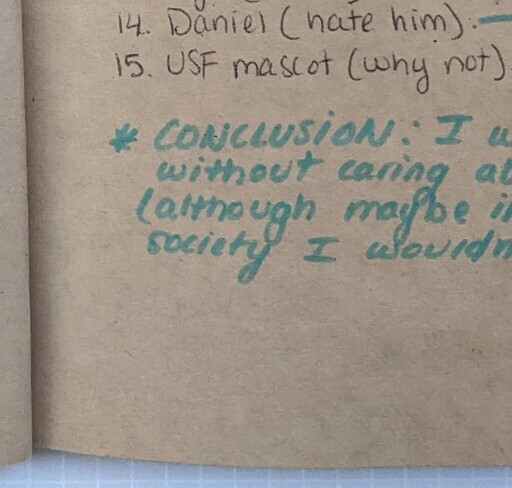 14. Daniel (hate him).
15. USF mascot (why not)
* CONCLUSION: I
without caring
(although maybe
society I